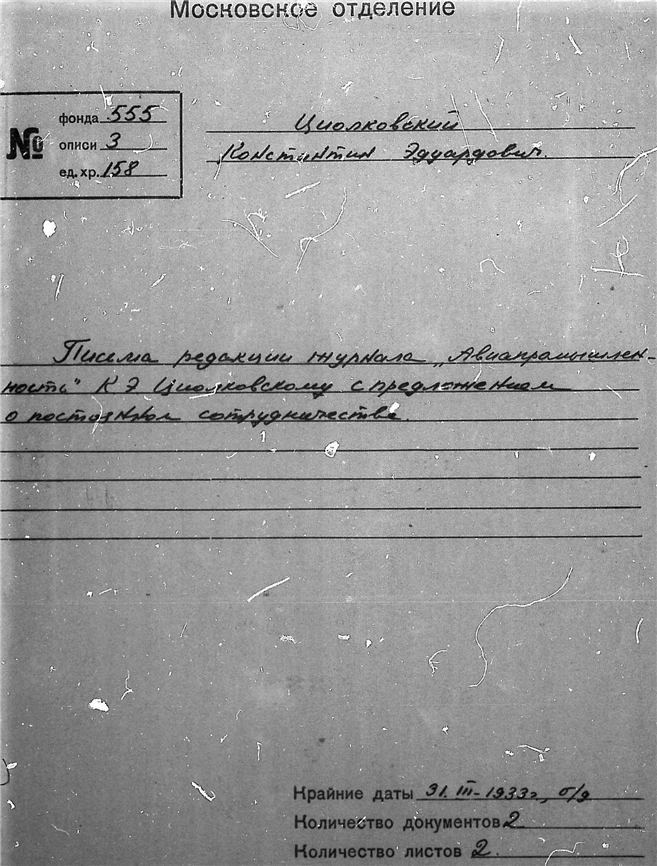 Московское отделение
№
фонда 555
описи 3
ед. хр. 158
Циолковский
Константин Эдуардович.
Письма редакции журнала „Авиапромышлен-
ность" К Э Циолковскому с предложением
о постоянном сотрудничестве.
Крайние даты 31.III-1933г., б/д
Количество документов 2
Количество листов 2